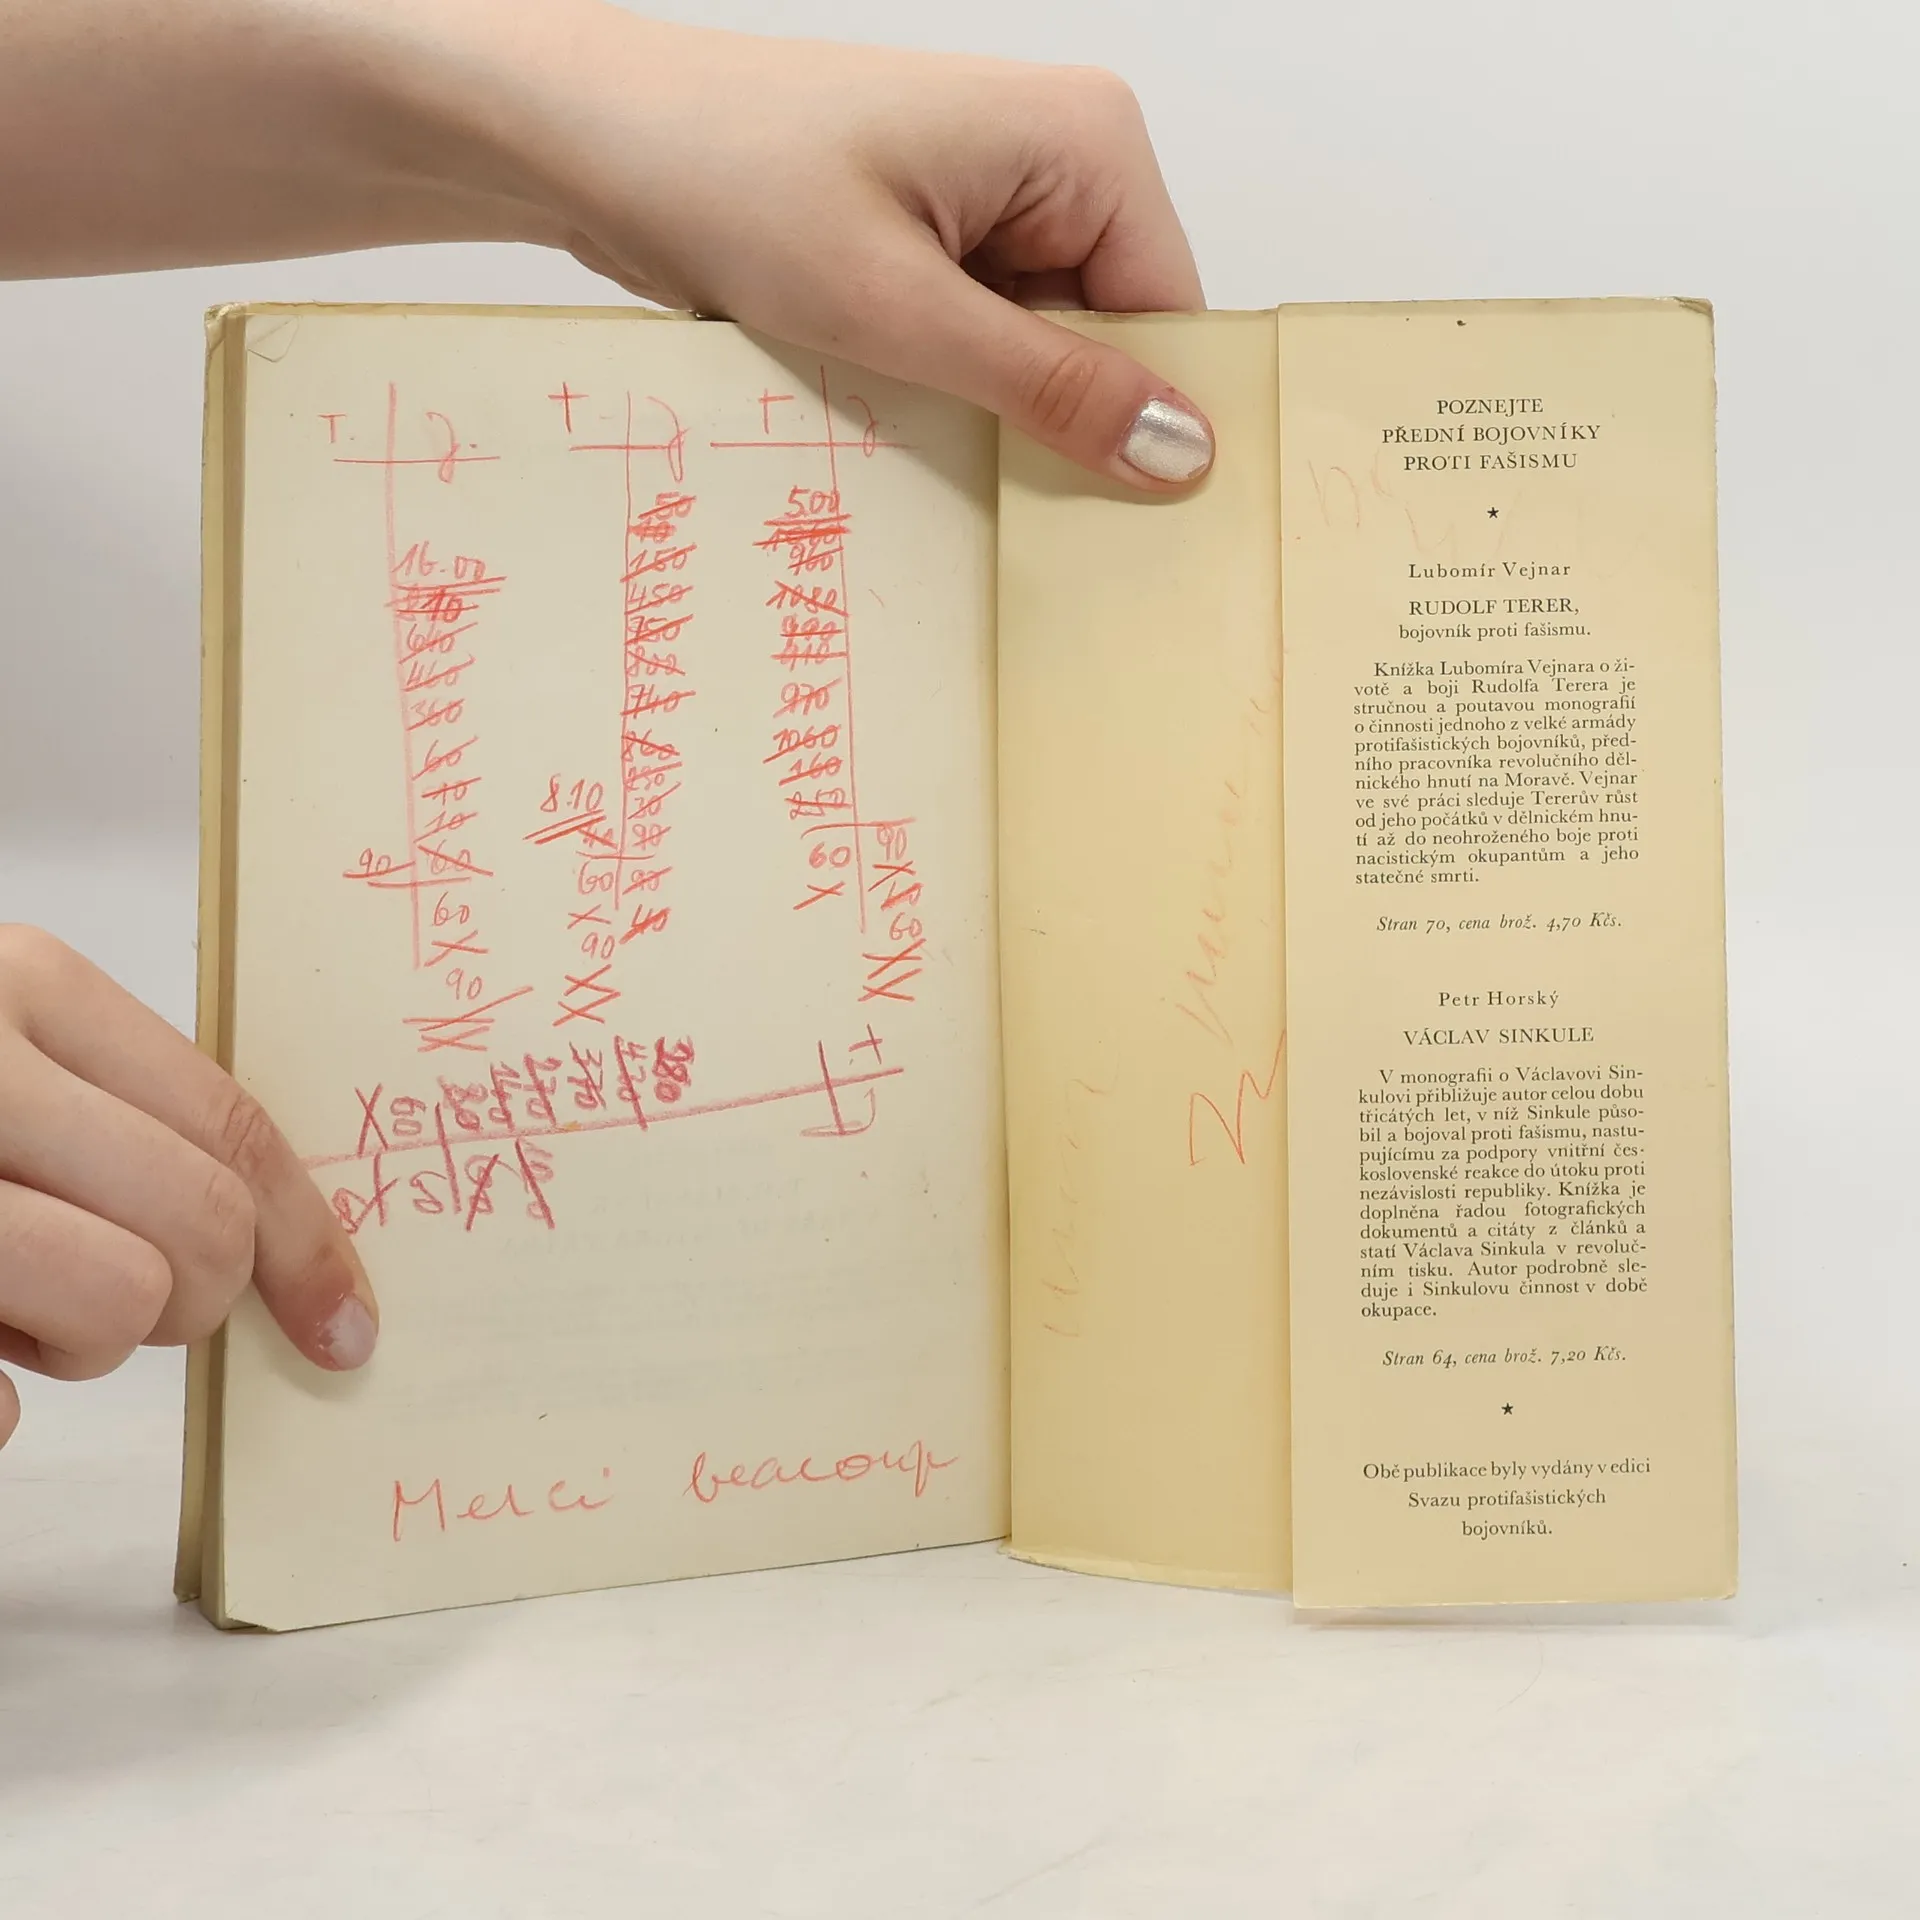 T. J.
T. J.
T. J.
16.00
10
640
460
360
60
70
10
90 60
60
X
90
XX
50
10
150
450
750
740
860
8.10
30
90
60
X
90
XX
40
5.00
960
1080
410
970
1060
160
60
X
90
60
XX
T.
J
X 60
Merci beacoup
POZNEJTE
PŘEDNÍ BOJOVNÍKY
PROTI FAŠISMU
★
Lubomír Vejnar
RUDOLF TERER,
bojovník proti fašismu.
Knížka Lubomíra Vejnara o ži-
votě a boji Rudolfa Terera je
stručnou a poutavou monografií
o činnosti jednoho z velké armády
protifašistických bojovníků, před-
ního pracovníka revolučního děl-
nického hnutí na Moravě. Vejnar
ve své práci sleduje Tererův růst
od jeho počátků v dělnickém hnu-
tí až do neohroženého boje proti
nacistickým okupantům a jeho
statečné smrti.
Stran 70, cena brož. 4,70 Kčs.
Petr Horský
VÁCLAV SINKULE
V monografii o Václavovi Sin-
kulovi přibližuje autor celou dobu
třicátých let, v níž Sinkule půso-
bil a bojoval proti fašismu, nastu-
pujícímu za podpory vnitřní čes-
koslovenské reakce do útoku proti
nezávislosti republiky. Knížka je
doplněna řadou fotografických
dokumentů a citáty z článků a
statí Václava Sinkula v revoluč-
ním tisku. Autor podrobně sle-
duje i Sinkulovu činnost v době
okupace.
Stran 64, cena brož. 7,20 Kčs.
★
Obě publikace byly vydány v edici
Svazu protifašistických
bojovníků.